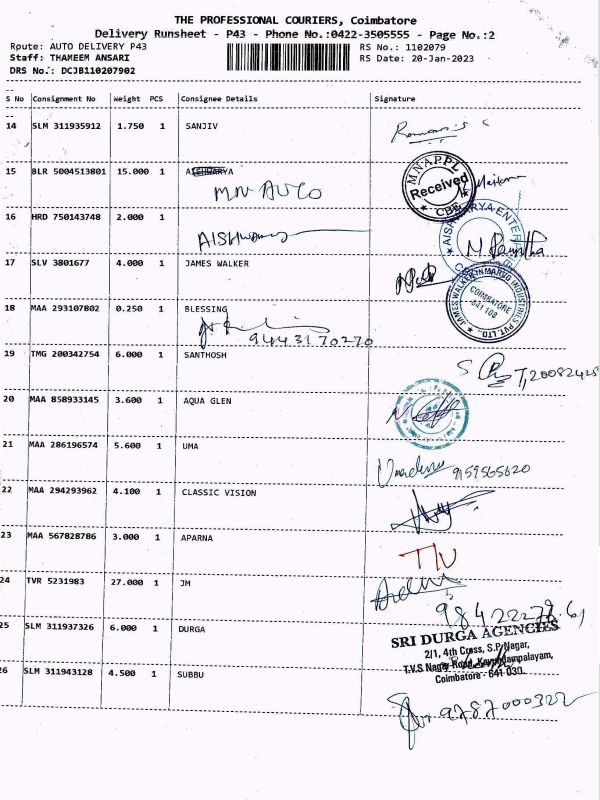 THE PROFESSIONAL COURIERS, Coimbatore
Delivery Runsheet - P43 - Phone No.:0422-3505555 - Page No.:2
Route: AUTO DELIVERY P43 RS No.: 1102079
Staff: THAMEEM ANSARI RS Date: 20-Jan-2023
DRS No.: DCJB110207902
S No Consignment No Weight PCS Consignee Details Signature
14 SLM 311935912 1.750 1 SANJIV
15 BLR 5004513801 15.000 1 AISHWARYA
MN AUTO
MNAPPL
Received
CBE
16 HRD 750143748 2.000 1
17 SLV 3801677 4.000 1 JAMES WALKER
JAMES WALKER INMARCO INDUSTRIES PVT. LTD.
COIMBATORE
641 108
18 MAA 293107802 0.250 1 BLESSING
9443170270
19 TMG 200342754 6.000 1 SANTHOSH
20 MAA 858933145 3.600 1 AQUA GLEN
21 MAA 286196574 5.600 1 UMA
9159565620
22 MAA 294293962 4.100 1 CLASSIC VISION
23 MAA 567828786 3.000 1 APARNA
24 TVR 5231983 27.000 1 JM
25 SLM 311937326 6.000 1 DURGA
SRI DURGA AGENCIES
2/1, 4th Cross, S.P. Nagar,
T.V.S Nagar Road, Kavundampalayam,
Coimbatore - 641 030.
26 SLM 311943128 4.500 1 SUBBU
9787000322